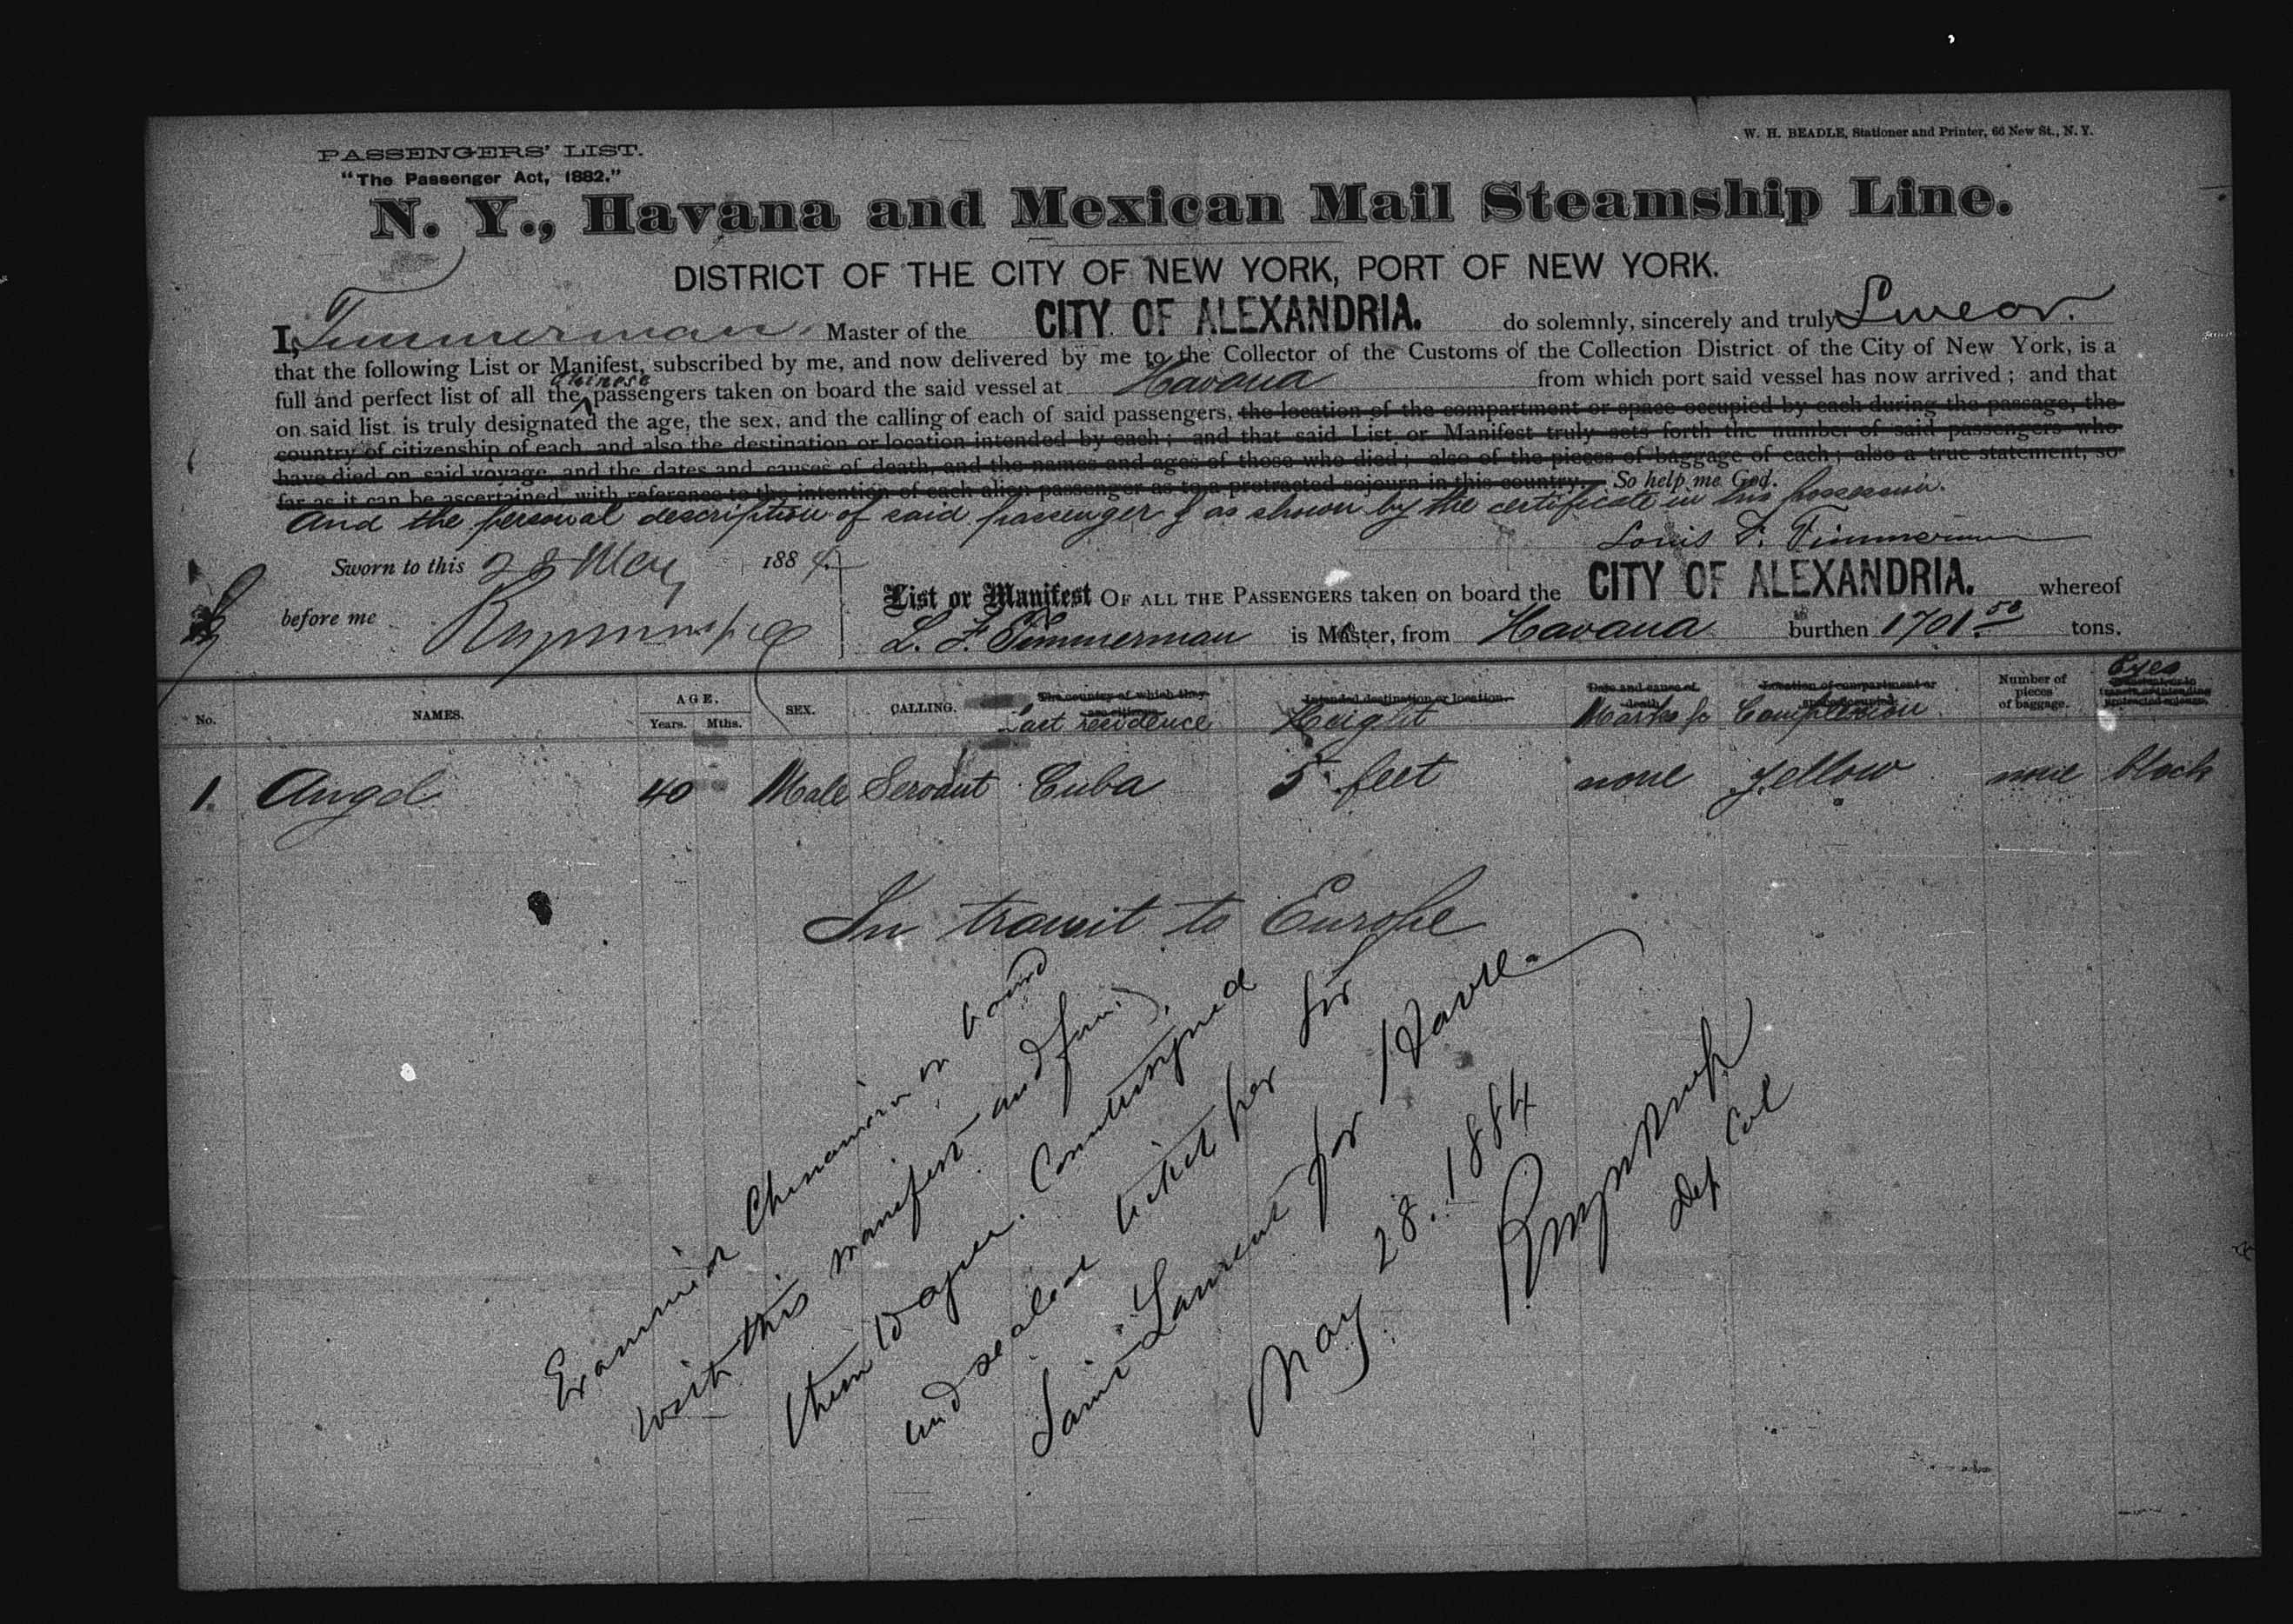 W. H. BEADLE, Stationer and Printer, 66 New St., N. Y.
PASSENGERS' LIST.
"The Passenger Act, 1882."
N. Y., Havana and Mexican Mail Steamship Line.
DISTRICT OF THE CITY OF NEW YORK, PORT OF NEW YORK.
I, Timmerman Master of the CITY OF ALEXANDRIA. do solemnly, sincerely and truly Swear.
that the following List or Manifest, subscribed by me, and now delivered by me to the Collector of the Customs of the Collection District of the City of New York, is a
full and perfect list of all the chinese passengers taken on board the said vessel at Havana from which port said vessel has now arrived; and that
on said list is truly designated the age, the sex, and the calling of each of said passengers, the location of the compartment or space occupied by each during the passage, the
country of citizenship of each, and also the destination or location intended by each; and that said List or Manifest truly sets forth the number of said passengers who
have died on said voyage, and the dates and causes of death, and the names and ages of those who died; also of the pieces of baggage of each; also a true statement, so
far as it can be ascertained, with reference to the intention of each alien passenger as to a protracted sojourn in this country. So help me God.
And the personal description of said passenger as shown by the certificate in his possession.
Louis F. Timmerman
Sworn to this 28 May 1884
before me
List or Manifest OF ALL THE PASSENGERS taken on board the CITY OF ALEXANDRIA. whereof
L. F. Timmerman is Master, from Havana burthen 1701.50 tons.
No. NAMES. AGE. Years. Mths. SEX. CALLING. The country of which they are citizens. Last residence Intended destination or location. Height Date and cause of death. Marks Location of compartment or space occupied. Complexion Number of pieces of baggage. Eyes
1. Angel 40 Male Servant Cuba 5 feet none Yellow none black
In transit to Europe
Examined Chinaman on board
with this manifest and found
them to agree. Countersigned
and sealed ticket per Str
Saint Laurent for Havre.
May 28. 1884
Dep Col